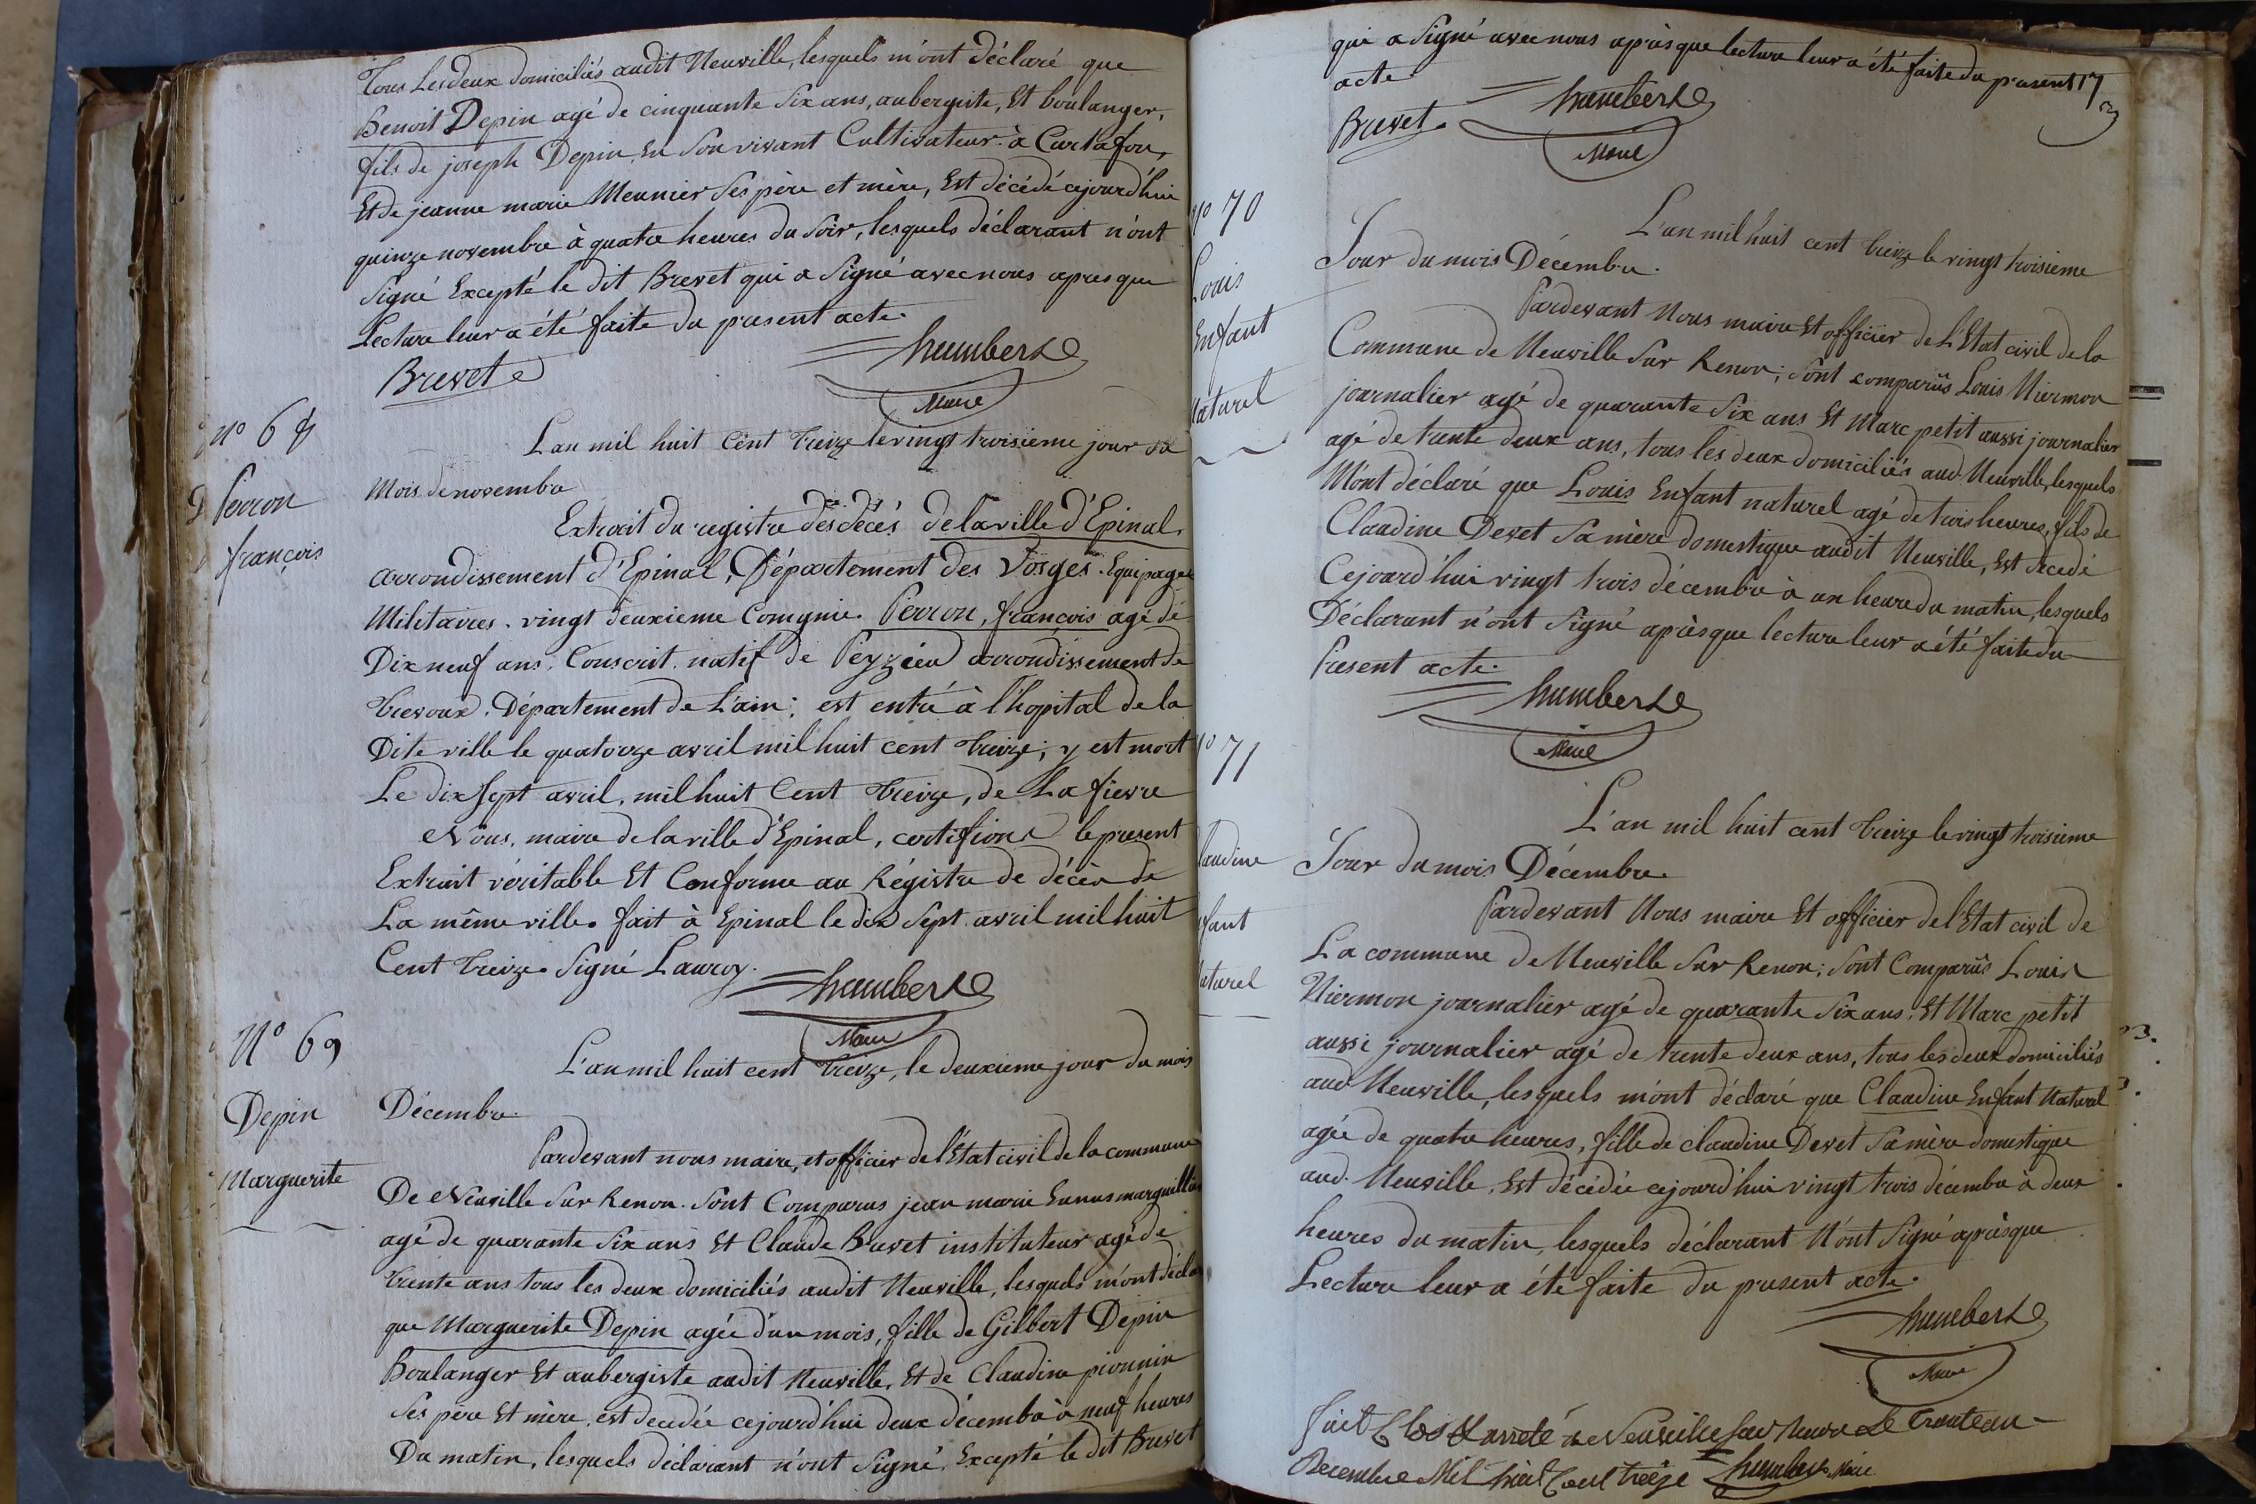 Tous Les deux domiciliés audit Neuville, lesquels m'ont déclaré que
Benoit Depin agé de cinquante Six ans, aubergiste, Et boulanger,
fils de joseph Depin, En Son vivant Cultivateur à Curtafon,
Et de jeanne marie Meunier Ses père et mère, Est décédé cejourd'hui
quinze novembre à quatre heures du Soir, lesquels déclarant n'ont
Signé Excepté le dit Brevet qui a Signé avec nous apres que
Lecture leur a été faite du present acte.
Brevet humbert
Maire
N° 68
Perron
françois
L'an mil huit Cent treize le vingt troisieme jour du
Mois de novembre
Extrait du registre des decés de la ville d'Epinal,
arrondissement d'Epinal, Département des Vosges. Equipages
Militaires. vingt deuxieme Comgnie. Perron, françois agé de
Dix neuf ans. Conscrit. natif de Peyzieu arrondissement de
trevoux. Département de L'ain; est entré à l'hopital de la
Dite ville le quatorze avril mil huit cent treize; y est mort
Le dix sept avril, mil huit Cent treize, de La fievre
Nous, maire de la ville d'Epinal, certifions le present
Extrait véritable Et Conforme au Régistre de décès de
La même ville. fait à Epinal le dix Sept avril mil huit
Cent treize. Signé Lauroy.
humbert
Maire
N° 69
Depin
Marguerite
L'an mil huit cent treize, le deuxieme jour du mois
Décembre.
Pardevant nous maire, et officier de l'Etat civil de la commune
De Neuville Sur Renon. Sont Comparus jean marie marguillier
agé de quarante Six ans Et Claude Brevet instituteur agé de
trente ans tous les deux domiciliés audit Neuville, lesquels m'ont décla
que Marguerite Depin agée d'un mois, fille de Gilbert Depin
Boulanger Et aubergiste audit Neuville, Et de Claudine pionnin
Ses père Et mère, est decedée cejourd'hui deux décembre à neuf heures
Du matin, lesquels déclarant n'ont Signé, Excepté le dit Brevet
qui a Signé avec nous après que lecture leur a été faite du present 17
acte.
Brevet. humbert
Maire
N° 70
Louis
Enfant
Naturel
L'an mil huit cent treize le vingt troisieme
Jour du mois Décembre.
Pardevant Nous maire Et officier de L'Etat civil de la
Commune de Neuville Sur Renon; Sont comparûs Louis Niermon
journalier agé de quarante Six ans Et Marc petit aussi journalier
agé de trente deux ans, tous les deux domiciliés aud Neuville, lesquels
M'ont déclaré que Louis Enfant naturel agé de trois heures, fils de
Claudine Devet Sa mère domestique audit Neuville, Est décedé
Cejourd'hui vingt trois décembre à un heure du matin, lesquels
Déclarant n'ont Signé après que lecture leur a été faite du
Present acte.
humbert
Maire
° 71
laudine
fant
aturel
L'an mil huit cent treize le vingt troisieme
Jour du mois Décembre.
Pardevant Nous maire Et officier de l'Etat civil de
La commune de Neuville Sur Renon; Sont Comparûs Louis
Niermon journalier agé de quarante Six ans, Et Marc petit
aussi journalier agé de trente deux ans, tous les deux domiciliés
aud Neuville, lesquels m'ont déclaré que Claudine Enfant Naturel
agée de quatre heures, fille de claudine Devet Sa mère domestique
aud. Neuville, Est décédée cejourd'hui vingt trois décembre à deux
heures du matin, lesquels déclarant N'ont Signé après que
Lecture leur a été faite du present acte.
humbert
Maire
fait Clos & arreté à Neuville Sur Renon Le trente un
Decembre Mil huit Cent treize humbert Maire